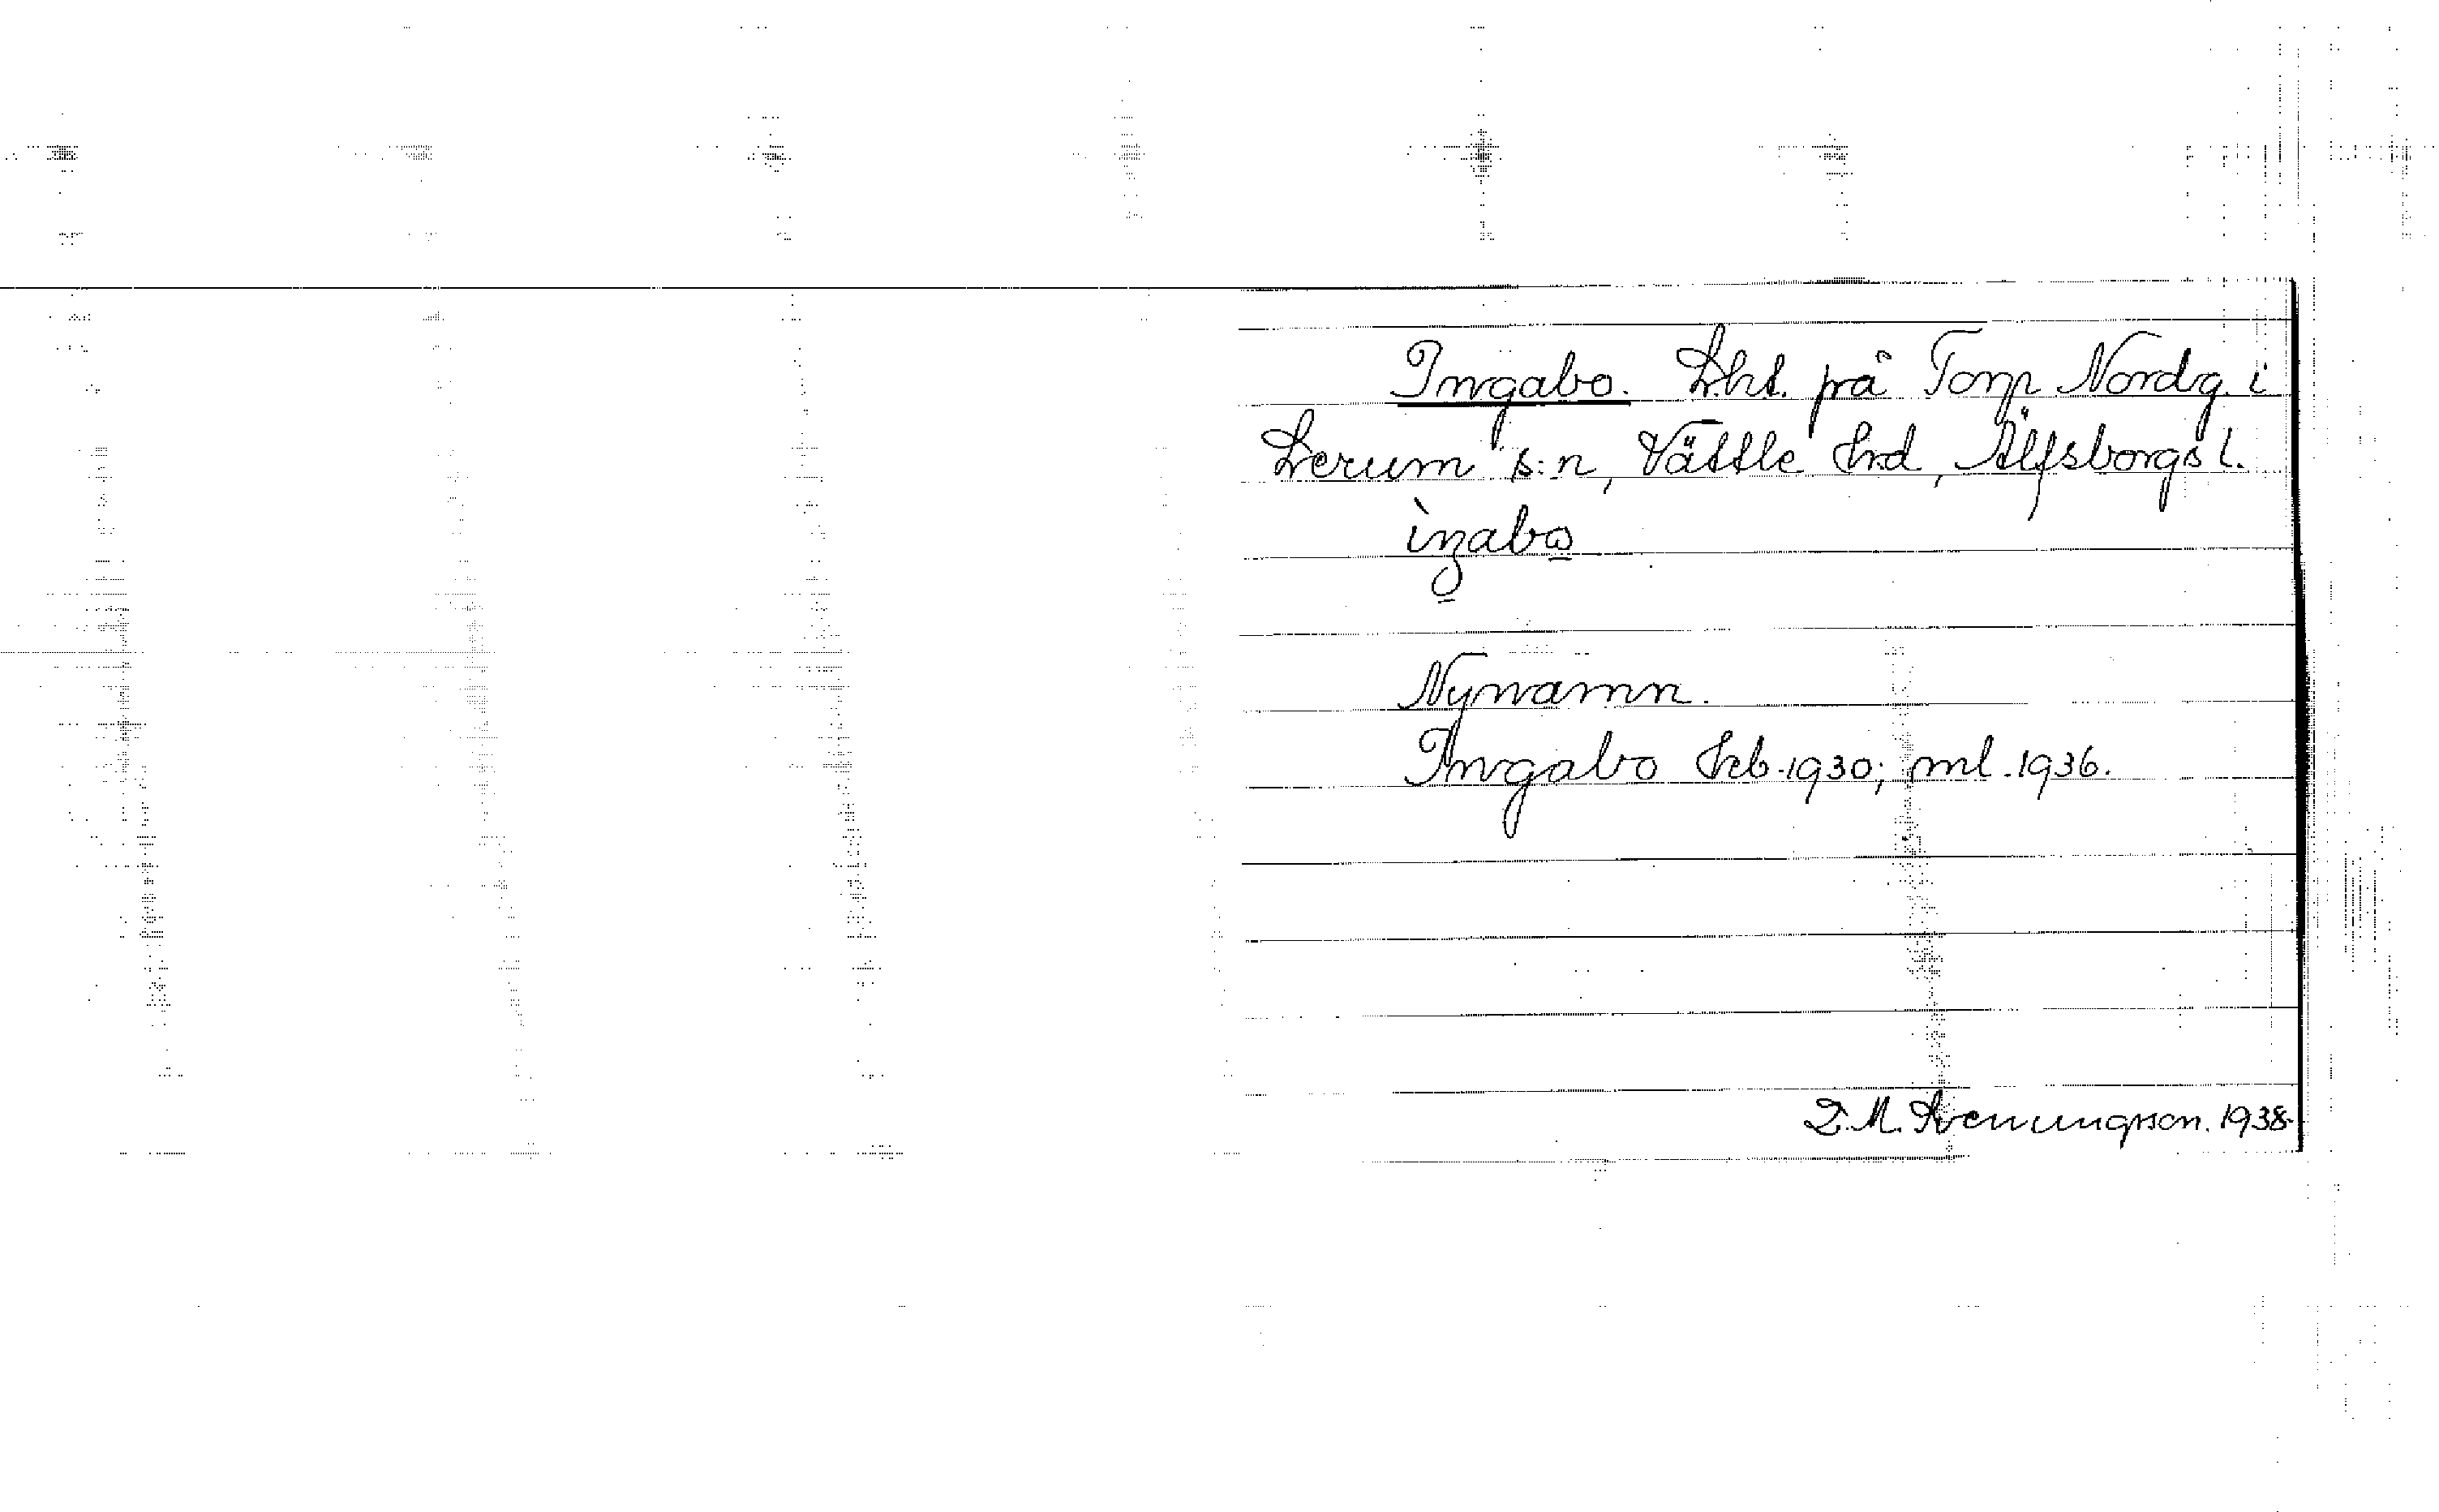 Ingabo. Lht. på Torp Nordg. i
Lerum s:n, Vättle hd, Älfsborgs l.
Nynamn.
Ingabo hfb. 1930; ml. 1936.
1938.